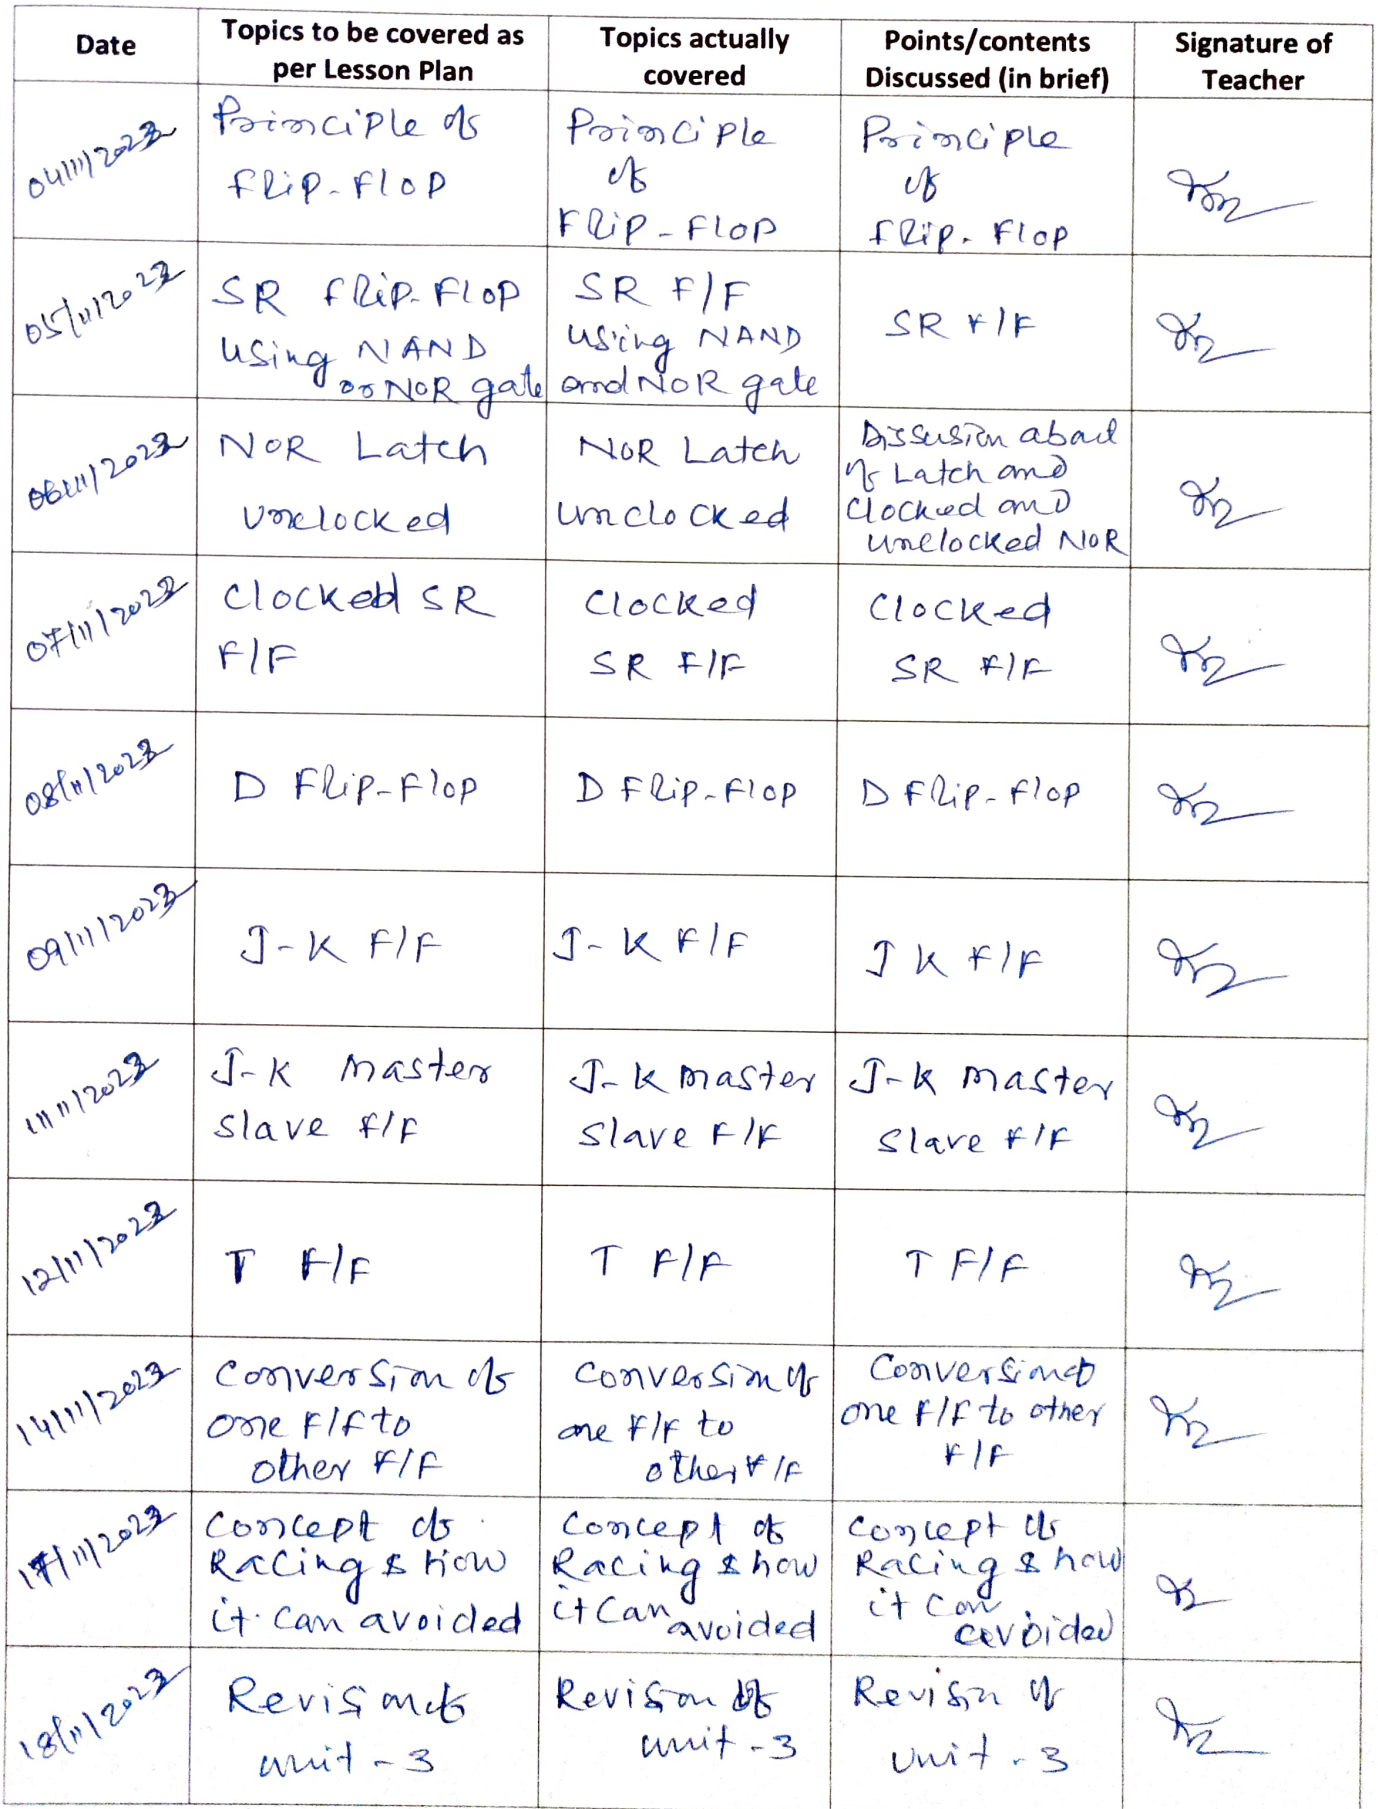 Date
Topics to be covered as
per Lesson Plan
Topics actually
covered
Points/contents
Discussed (in brief)
Signature of
Teacher
04/11/2023
Principle of
Flip-Flop
Principle
of
Flip-Flop
Principle
of
flip-Flop
05/11/2023
SR flip-Flop
using NAND
or NOR gate
SR F/F
using NAND
and NOR gate
SR F/F
06/11/2023
NOR Latch
Unclocked
NOR Latch
unclocked
Dissusion abaut
of Latch and
Clocked and
unclocked NOR
07/11/2023
Clocked SR
F/F
Clocked
SR F/F
Clocked
SR F/F
08/11/2023
D Flip-Flop
D Flip-Flop
D flip-flop
09/11/2023
J-K F/F
J-K F/F
JK F/F
11/11/2023
J-K Master
Slave F/F
J-K master
Slave F/F
J-K master
Slave F/F
12/11/2023
T F/F
T F/F
T F/F
14/11/2023
Conversion of
one F/F to
other F/F
Conversion of
one F/F to
other F/F
Conversion of
one F/F to other
F/F
17/11/2023
Concept of
Racing & How
it can avoided
Concept of
Racing & how
it Can avoided
Concept of
Racing & how
it Can
avoided
18/11/2023
Revision of
unit-3
Revison of
unit-3
Revisn of
Unit-3